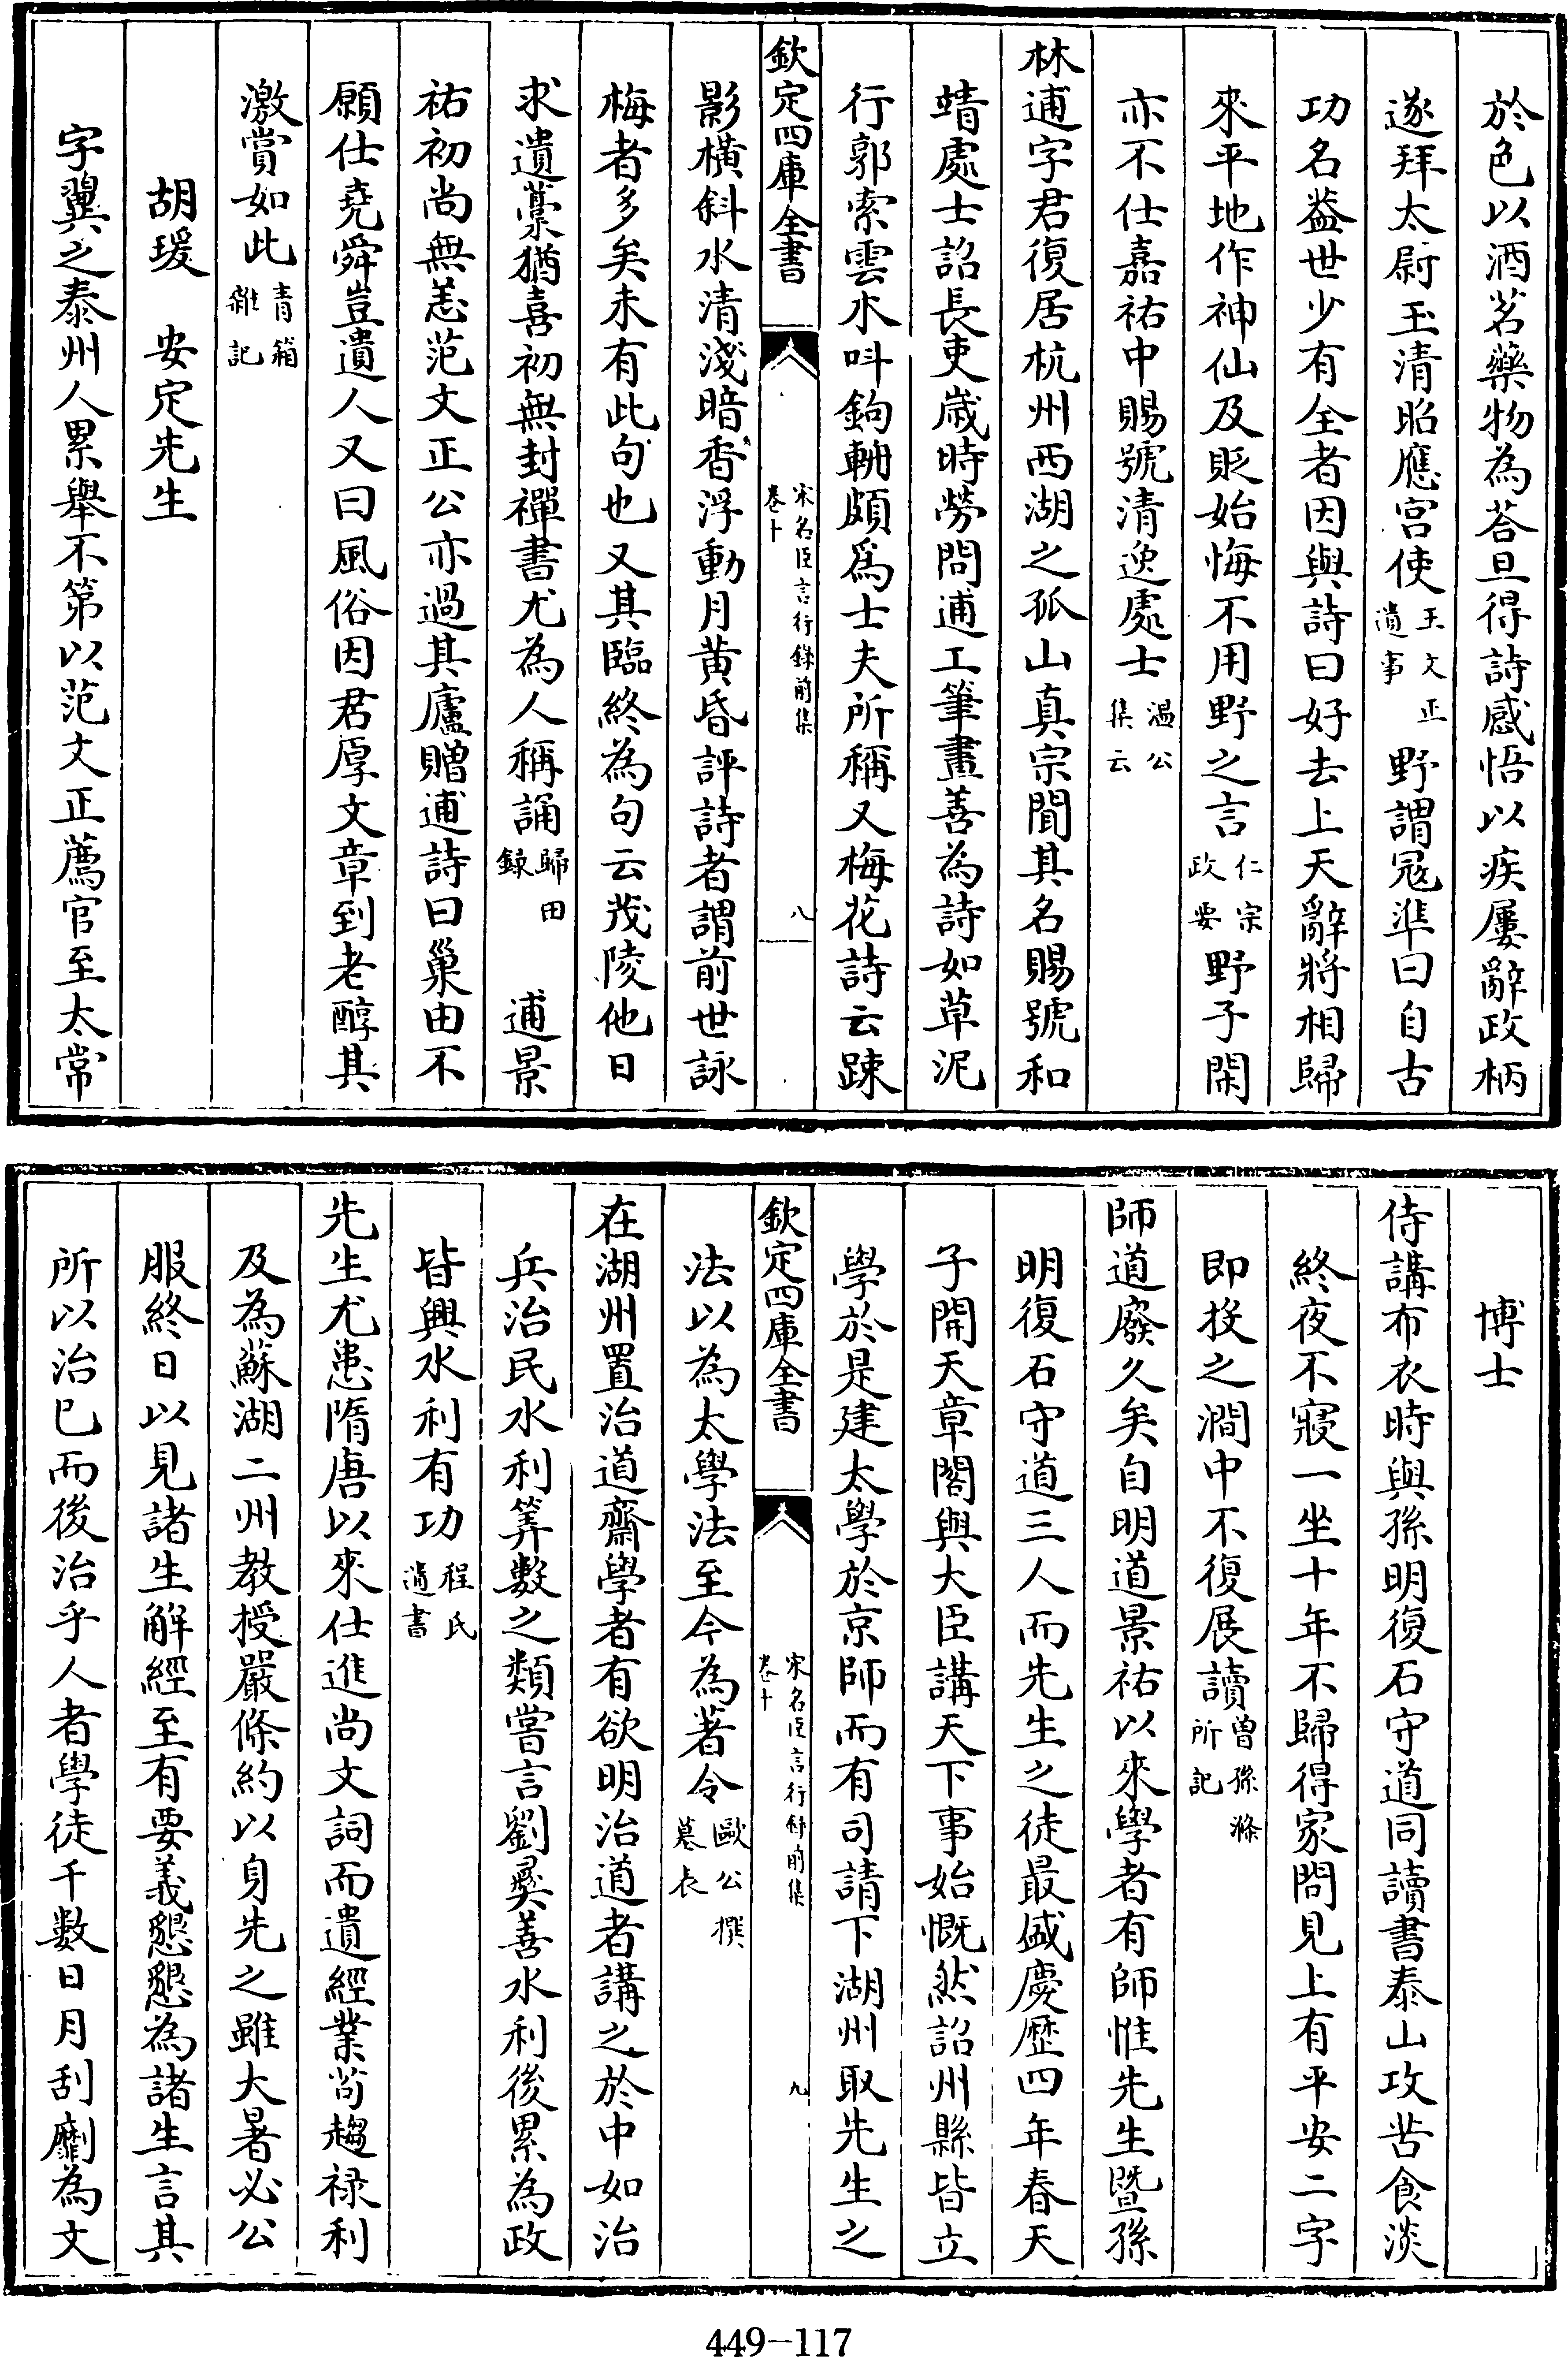 於色以酒茗藥物為荅旦得詩感悟以疾屢辭政柄
遂拜太尉玉清昭應宮使王文正遺事野謂冦準曰自古
功名葢世少有全者因與詩曰好去上天辭將相歸
來平地作神仙及貶始悔不用野之言仁宗政要野子閑
亦不仕嘉祐中賜號清逸處士溫公集云
林逋字君復居杭州西湖之孤山真宗聞其名賜號和
靖處士詔長吏嵗時勞問逋工筆畫善為詩如草泥
行郭索雲木呌鉤輈頗爲士夫所稱又梅花詩云踈
欽定四庫全書
宋名臣言行錄前集
卷十
八
影橫斜水清淺暗香浮動月黃昏評詩者謂前世詠
梅者多矣未有此句也又其臨終為句云茂陵他日
求遺藳猶喜初無封禪書尤為人稱誦歸田錄逋景
祐初尚無恙范文正公亦過其廬贈逋詩曰巢由不
願仕堯舜豈遺人又曰風俗因君厚文章到老醇其
激賞如此青箱雜記
胡瑗 安定先生
字翼之泰州人累舉不第以范文正薦官至太常
博士
侍講布衣時與孫明復石守道同讀書泰山攻苦食淡
終夜不寢一坐十年不歸得家問見上有平安二字
即投之澗中不復展讀曽孫滌所記
師道廢久矣自明道景祐以來學者有師惟先生暨孫
明復石守道三人而先生之徒最盛慶歴四年春天
子開天章閣與大臣講天下事始慨然詔州縣皆立
學於是建太學於京師而有司請下湖州取先生之
欽定四庫全書
宋名臣言行錄前集
卷十
九
法以為太學法至今為著令歐公撰墓表
在湖州置治道齋學者有欲明治道者講之於中如治
兵治民水利筭數之類嘗言劉彞善水利後累為政
皆興水利有功程氏遺書
先生尤患隋唐以來仕進尚文詞而遺經業苟趨禄利
及為蘇湖二州教授嚴條約以身先之雖大暑必公
服終日以見諸生解經至有要義懇懇為諸生言其
所以治已而後治乎人者學徒千數日月刮劘為文
449-117